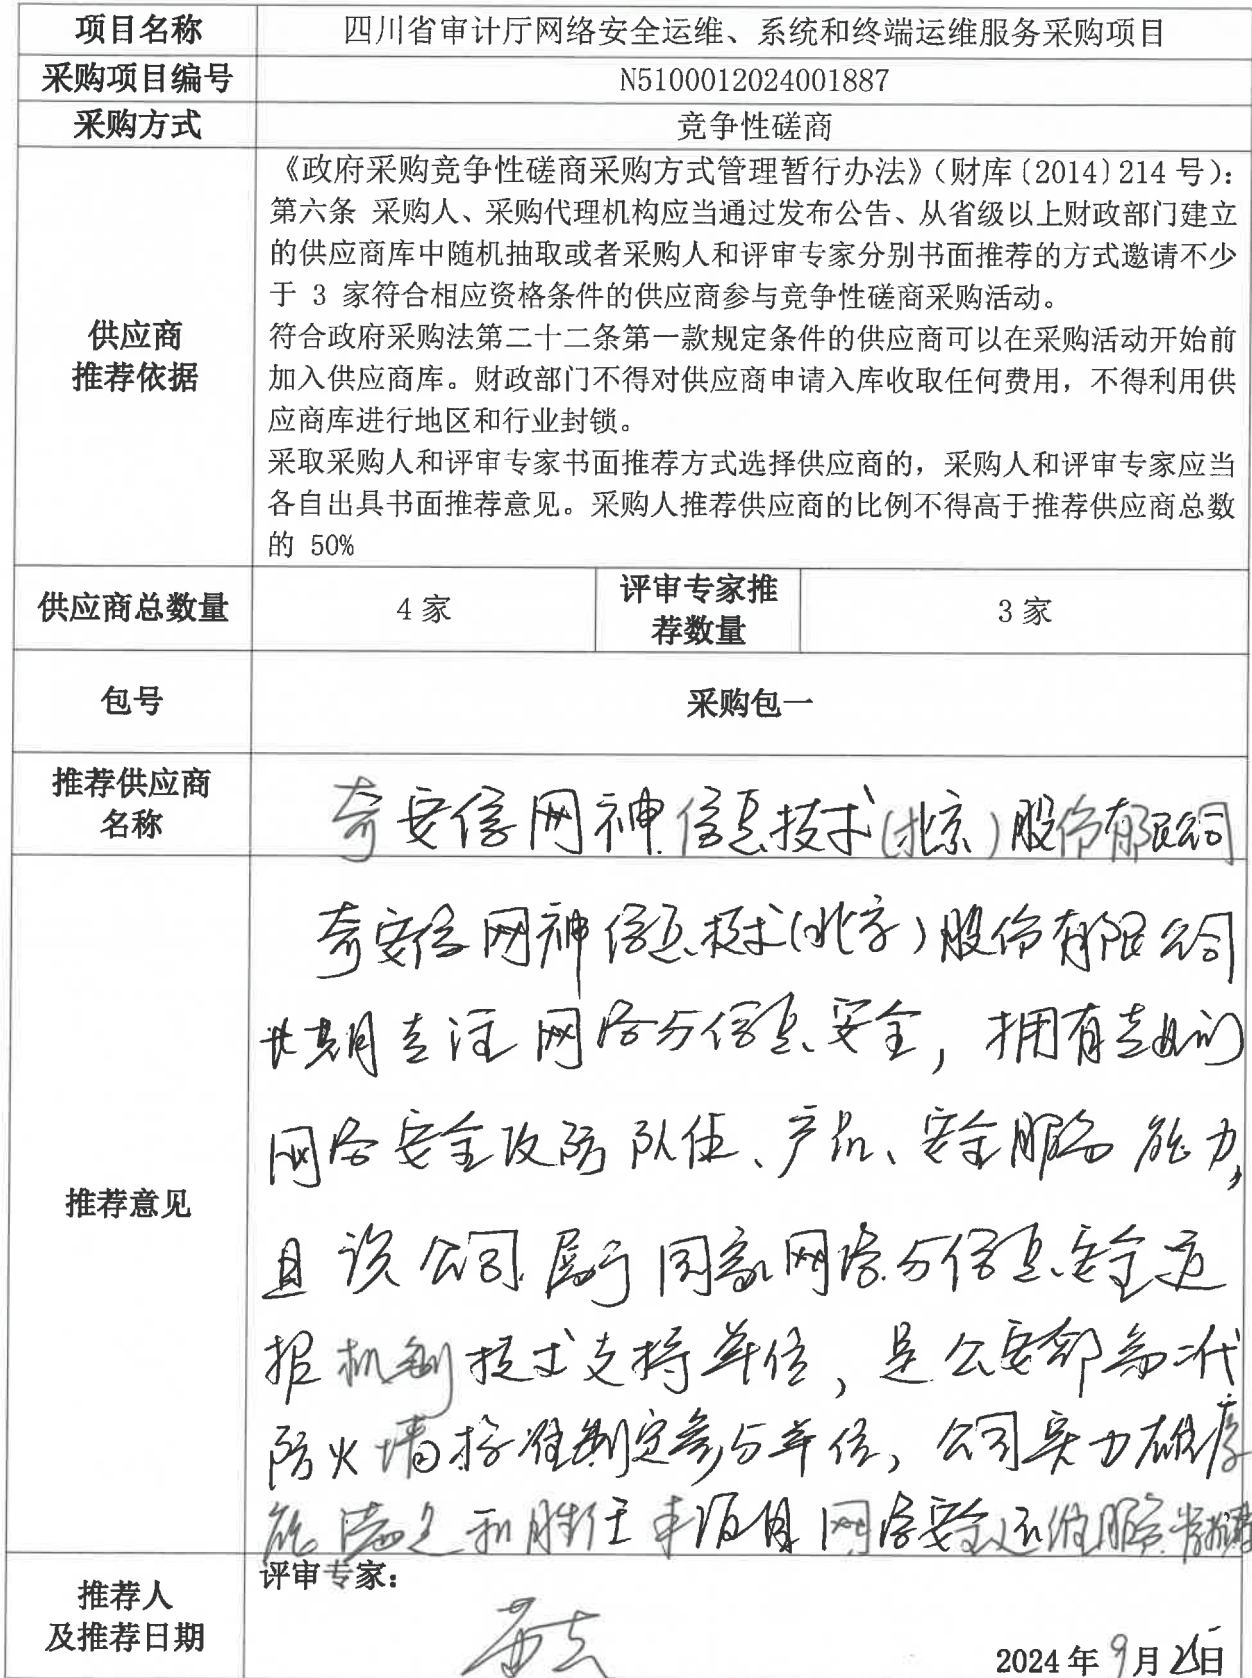 项目名称 四川省审计厅网络安全运维、系统和终端运维服务采购项目
采购项目编号 N5100012024001887
采购方式 竞争性磋商
《政府采购竞争性磋商采购方式管理暂行办法》（财库〔2014〕214号）：
第六条 采购人、采购代理机构应当通过发布公告、从省级以上财政部门建立
的供应商库中随机抽取或者采购人和评审专家分别书面推荐的方式邀请不少
于 3 家符合相应资格条件的供应商参与竞争性磋商采购活动。
供应商
推荐依据
符合政府采购法第二十二条第一款规定条件的供应商可以在采购活动开始前
加入供应商库。财政部门不得对供应商申请入库收取任何费用，不得利用供
应商库进行地区和行业封锁。
采取采购人和评审专家书面推荐方式选择供应商的，采购人和评审专家应当
各自出具书面推荐意见。采购人推荐供应商的比例不得高于推荐供应商总数
的 50%
供应商总数量 4 家 评审专家推
荐数量 3 家
包号 采购包一
推荐供应商
名称
奇安信网神信息技术(北京)股份有限公司
推荐意见
奇安信网神信息技术(北京)股份有限公司
长期专注网络与信息安全，拥有专门
网络安全攻防队伍、产品、安全服务能力，
且该公司属于国家网络与信息安全通
报机制技术支持单位，是公安部第二代
防火墙标准制定参与单位，公司实力雄厚
能满足和胜任本项目网络安全运维服务
推荐人
及推荐日期
评审专家：
2024年9月25日